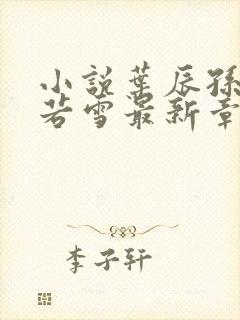 小説葉辰孫
若雪最新章
李子軒